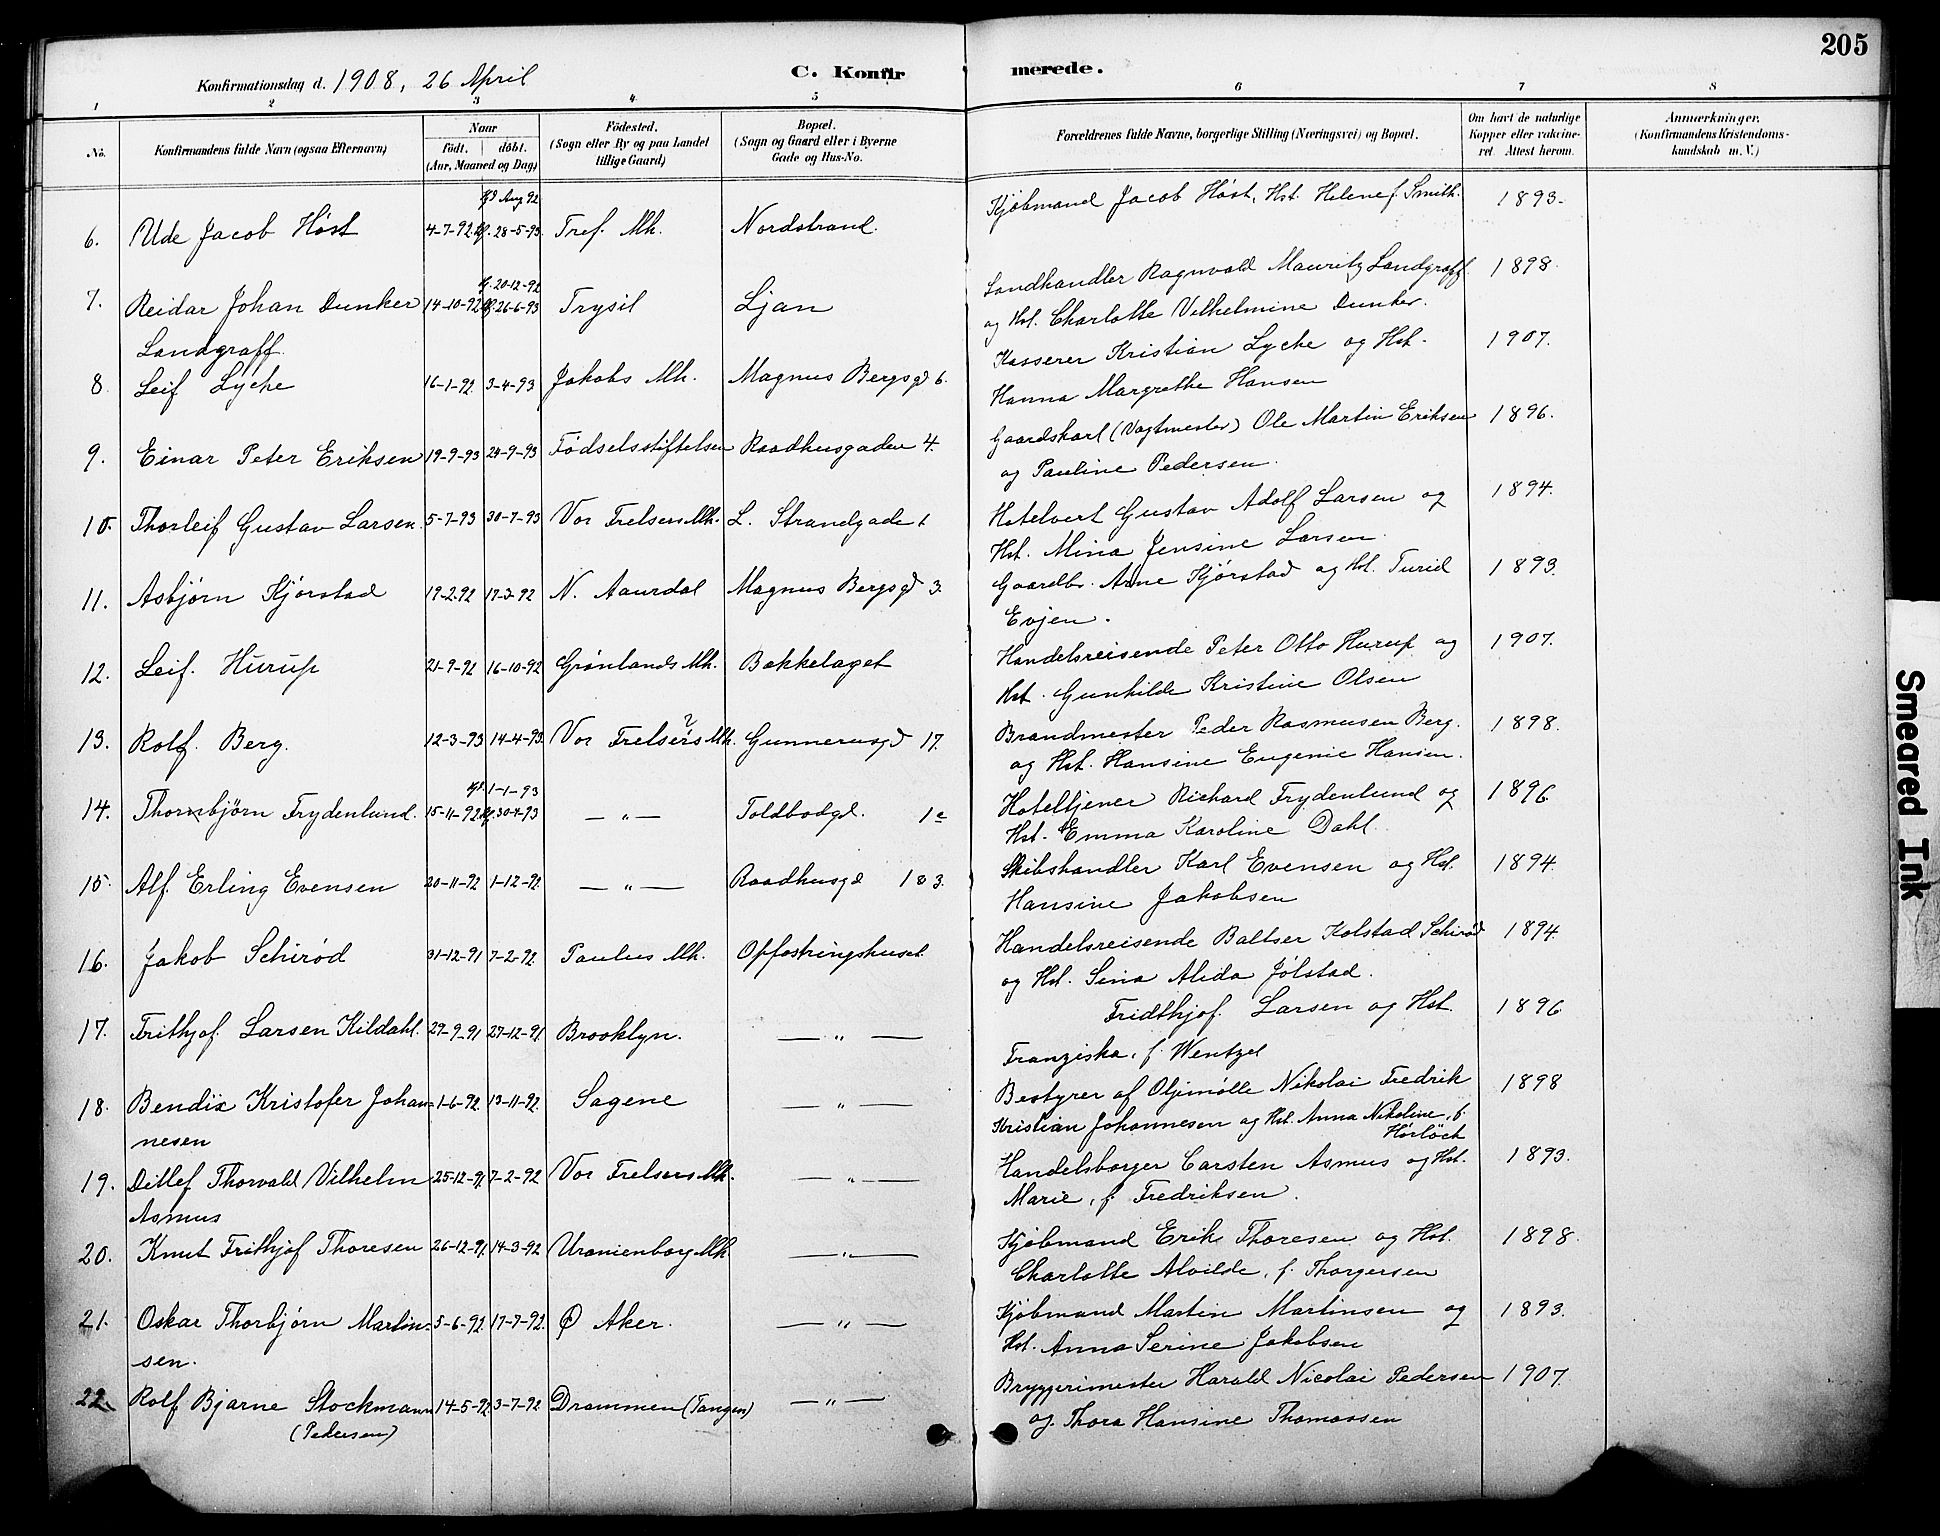 205
Konfirmationsdag d. 1908, 26 April
C. Konfirmerede.
1 2 3 4 5 6 7 8
No. Konfirmandens fulde Navn (ogsaa Efternavn) Naar født. døbt. (Aar, Maaned og Dag) Fødested. (Sogn eller By og paa Landet tillige Gaard) Bopæl. (Sogn og Gaard eller i Byerne Gade og Hus-No. Forældrenes fulde Navne, borgerlige Stilling (Næringsvei) og Bopæl. Om havt de naturlige Kopper eller vakcineret. Attest herom. Anmærkninger. (Konfirmandens Kristendomskundskab m. V.)
6. Ude Jacob Høst 4-7-92 Aug 92 28-5-93 Tref. Mk. Nordstrand. Kjøbmand Jacob Høst, Hst. Helene f. Smith. 1893.
7. Reidar Johan Dunker 14-10-92 20-12-92 26-6-93 Trysil Ljan Landhandler Ragnvald Mauritz Landgraff 1898.
Landgraff. og Hst. Charlotte Vilhelmine Dunker.
8. Leif Lyche 16-1-92 3-4-93 Jakobs Mk. Magnus Bergsgd 6. Kasserer Kristian Lyche og Hst. 1907.
Hanna Margrethe Hansen
9. Einar Peter Eriksen 19-9-93 24-9-93 Fødselsstiftelsen Raadhusgaden 4. Gaardskarl (Vagtmester) Ole Martin Eriksen 1896.
og Pauline Pedersen.
10. Thorleif Gustav Larsen 5-7-93 30-7-93 Vor Frelsers Mk. L. Strandgade 1 Hotelvert Gustav Adolf Larsen og 1894.
Hst. Mina Jensine Larsen
11. Asbjørn Kjørstad 19-2-92 17-3-92 N. Aaurdal Magnus Bergsgd 3. Gaardbr. Arne Kjørstad og Hst. Turid 1893.
Evjen.
12. Leif Hurup 21-9-92 16-10-92 Grønlands Mk. Bækkelaget Handelsreisende Peter Otto Hurup og 1907.
Hst. Gunhilde Kristine Olsen
13. Rolf Berg. 12-3-93 14-4-93 Vor Frelsers? Mk. Gunnerusgd 17. Brandmester Peder Rasmusen Berg. 1898.
og Hst. Hansine Eugenie Hansen.
14. Thornbjørn Frydenlund. 15-11-92 1-1-93 30-4-93 — " — Toldbodgd. 1c Hoteltjener Richard Frydenlund og 1896
Hst. Emma Karoline Dahl.
15. Alf Erling Evensen 20-11-92 1-12-92 — " — Raadhusgd 1 & 3. Skibshandler Karl Evensen og Hst. 1894.
Hansine Jakobsen
16. Jakob Schirød 31-12-91 7-2-92 Paulus Mk. Opfostringshuset Handelsreisende Baltser Kolstad Schirød 1894.
og Hst. Sina Alida Jølstad.
17. Frithjof Larsen Kildahl. 29-9-91 27-12-91 Brooklyn. — " — Fridthjof Larsen og Hst. 1896
Franziska, f. Wentzel
18. Bendix Kristofer Johan= 1-6-92 13-11-92. Sagene — " — Bestyrer af Oljemølle Nikolai Fredrik 1898
nesen Kristian Johannesen og Hst. Anna Nikoline, f.
Hørløck
19. Ditlef Thorvald Vilhelm 25-12-91 7-2-92 Vor Frelsers Mk. — " — Handelsborger Carsten Asmus og Hst. 1893.
Asmus Marie, f. Fredriksen.
20. Knut Frithjof Thoresen 26-12-91 14-3-92 Uranienborg Mk. — " — Kjøbmand Erik Thoresen og Hst. 1898.
Charlotte Alvilde, f. Thorgersen
21. Oskar Thorbjørn Martin= 5-6-92 17-7-92. Ø Aker. — " — Kjøbmand Martin Martinsen og 1893.
sen. Hst. Anna Serine Jakobsen
22. Rolf Bjarne Stockmann 14-5-92 3-7-92 Drammen (Tangen) — " — Bryggerimester Harald Nicolai Pedersen 1907.
(Pedersen) og Thora Hansine Thomassen
Smeared Ink